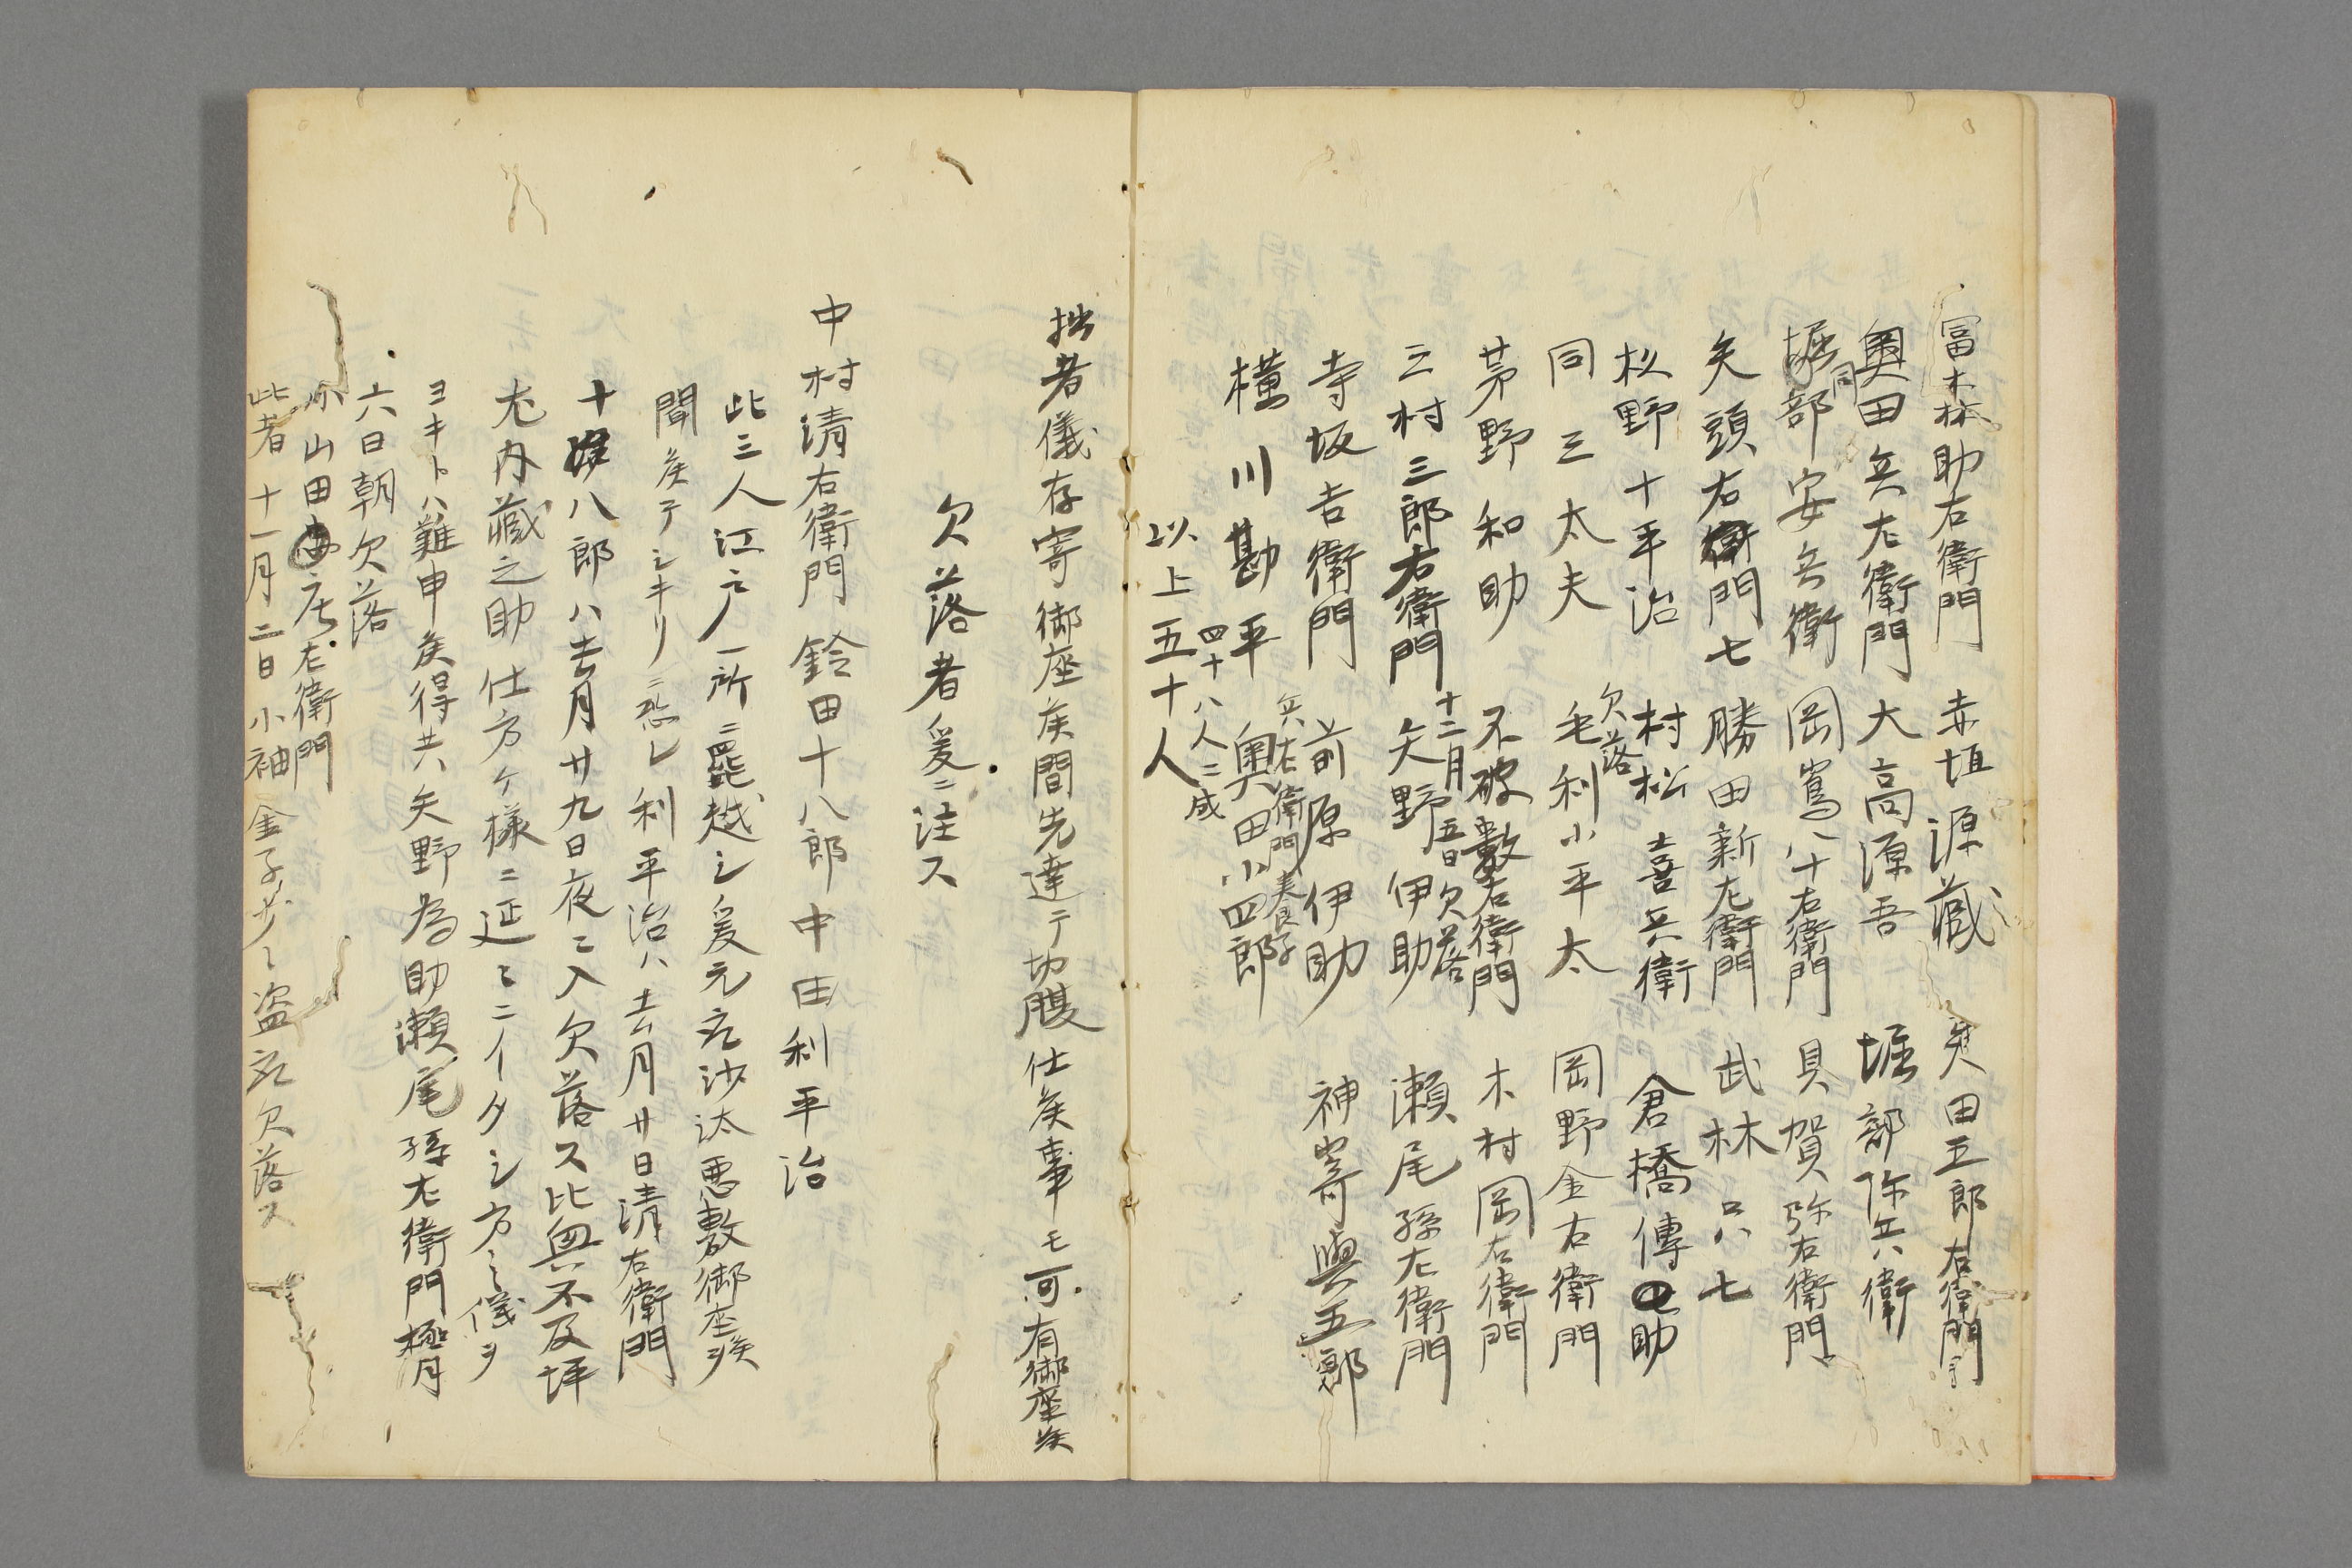 富森助右衛門　赤垣源蔵　奥田五郎右衛門
奥田兵左衛門　大高源吾　堀部弥兵衛
同
堀部安兵衛　岡嶌八十右衛門　貝賀弥右衛門
矢頭右衛門七　勝田新左衛門　武林只七
杦野十平治　村松喜兵衛　倉橋傳助
欠落
同三太夫　毛利小平太　岡野金右衛門
茅野和助　不破数右衛門　木村岡右衛門
十二月五日欠落
三村三郎右衛門　矢野伊助　瀬尾孫左衛門
寺坂吉衛門　前原伊助　神嵜與五郎
兵左衛門養子
横川勘平　奥田小四郎
四十八人ニ成
以上五十人
拙者儀存寄御座候間先達テ切腹仕候事モ可有御座候
欠落者爰ニ注ス
中村清右衛門　鈴田十八郎　中田利平治
此三人江戸一所ニ罷越シ爰元ニ沙汰悪敷御座候
聞候テシキリニ恐レ利平治ハ去月廿日清右衛門
十八郎ハ去月廿九日夜ニ入欠落ス比興不及坪
尤内蔵之助仕方ケ様ニ延ニイタシ方之儀ヲ
ヨキトハ難申候得共矢野為助瀬尾孫左衛門極月
六日朝欠落
小山田庄左衛門
此者十一月二日小袖金子少々盗取欠落ス